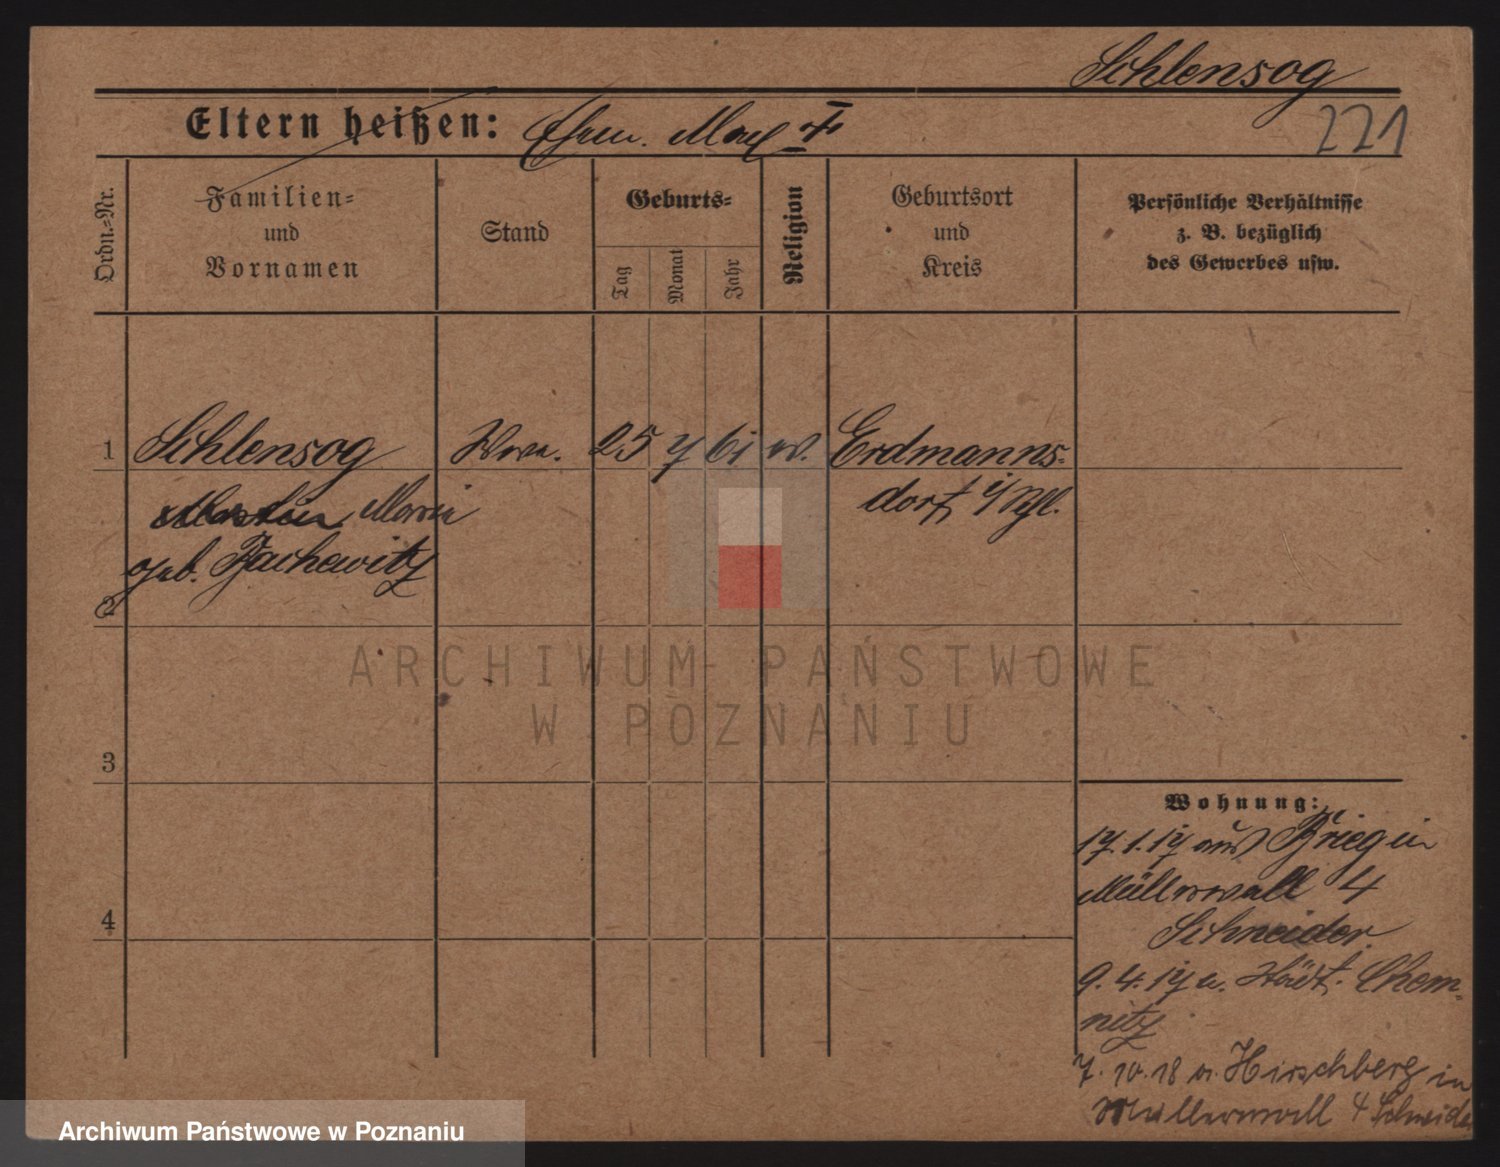 Schlensog
221
Eltern heißen: Ehem. Max †
Ordn.-Nr.
Familien-
und
Vornamen
Stand
Geburts-
Tag
Monat
Jahr
Religion
Geburtsort
und
Kreis
Persönliche Verhältnisse
z. B. bezüglich
des Gewerbes usw.
1 Schlensog Wwe. 25 7 61 ev. Erdmanns-
Maria dorf i/Schl.
geb.
2
3
4
Wohnung:
17.1.17 aus Brieg in
Müllerwall 4
Schneider
9.4.17 n. Städt. Chem-
nitz
7.10.18 v. Hirschberg in
Müllerwall 4 Schneider
ARCHIWUM PAŃSTWOWE
W POZNANIU
Archiwum Państwowe w Poznaniu